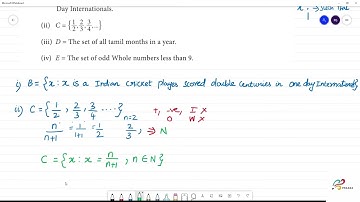 Day Internationals.
x : → such that
(ii) C = {1/2, 2/3, 3/4, ...}
(iii) D = The set of all tamil months in a year.
(iv) E = The set of odd Whole numbers less than 9.
i) B = {x : x is a Indian cricket player scored double centuries in one day Internationals}
ii) C = {1/2, 2/3, 3/4 ....}
n/n+1 = 1/1+1 = 1/2 n=2 2/3, ⇒ N
+, -ve, I ×
0 W ×
C = {x : x = n/n+1, n ∈ N}